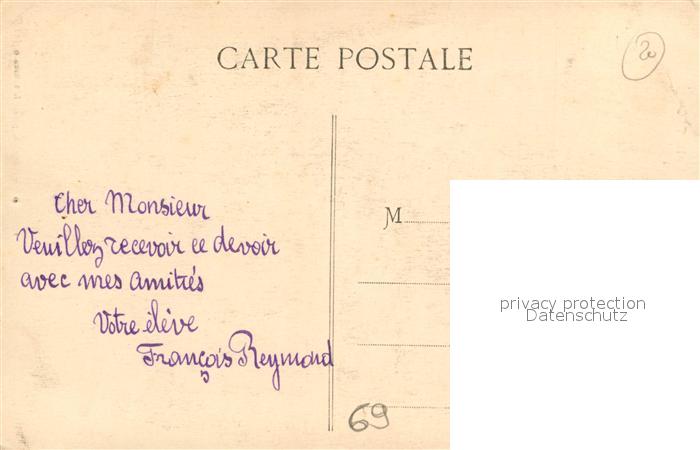 CARTE POSTALE
20
Cher Monsieur
Veuillez recevoir ce devoir
avec mes amitiés
Votre élève
François Reymond
M
privacy protection
Datenschutz
69